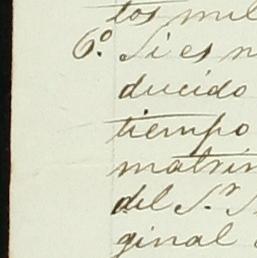 tos mil
6º. Si es n
ducido
tiempo
matrim
del S.r S
ginal